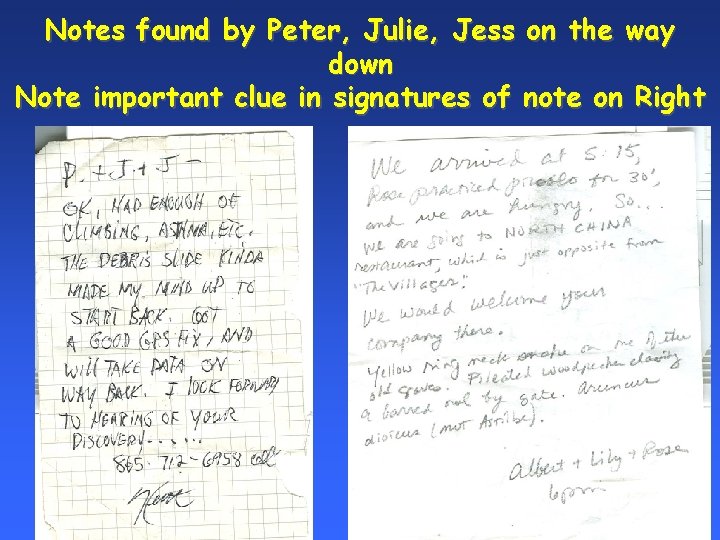 Notes found by Peter, Julie, Jess on the way
down
Note important clue in signatures of note on Right
P. + J. + J —
OK, HAD ENOUGH OF
CLIMBING, ASTHMA, ETC.
THE DEBRIS SLIDE KINDA
MADE MY MIND UP TO
START BACK. GOT
A GOOD GPS FIX, AND
WILL TAKE DATA ON
WAY BACK. I LOOK FORWARD
TO HEARING OF YOUR
DISCOVERY......
865-712-6958 cell
We arrived at 5:15,
Rose practiced piccolo for 30',
and we are hungry. So...
we are going to NORTH CHINA
restaurant, which is just opposite from
"The Villager."
We would welcome your
company there.
Yellow ring neck snake on one of the
old graves. Pileated woodpecker chasing
a barred owl by gate. Aruncus
dioicus (not Astilbe).
Albert + Lily + Rose
6pm